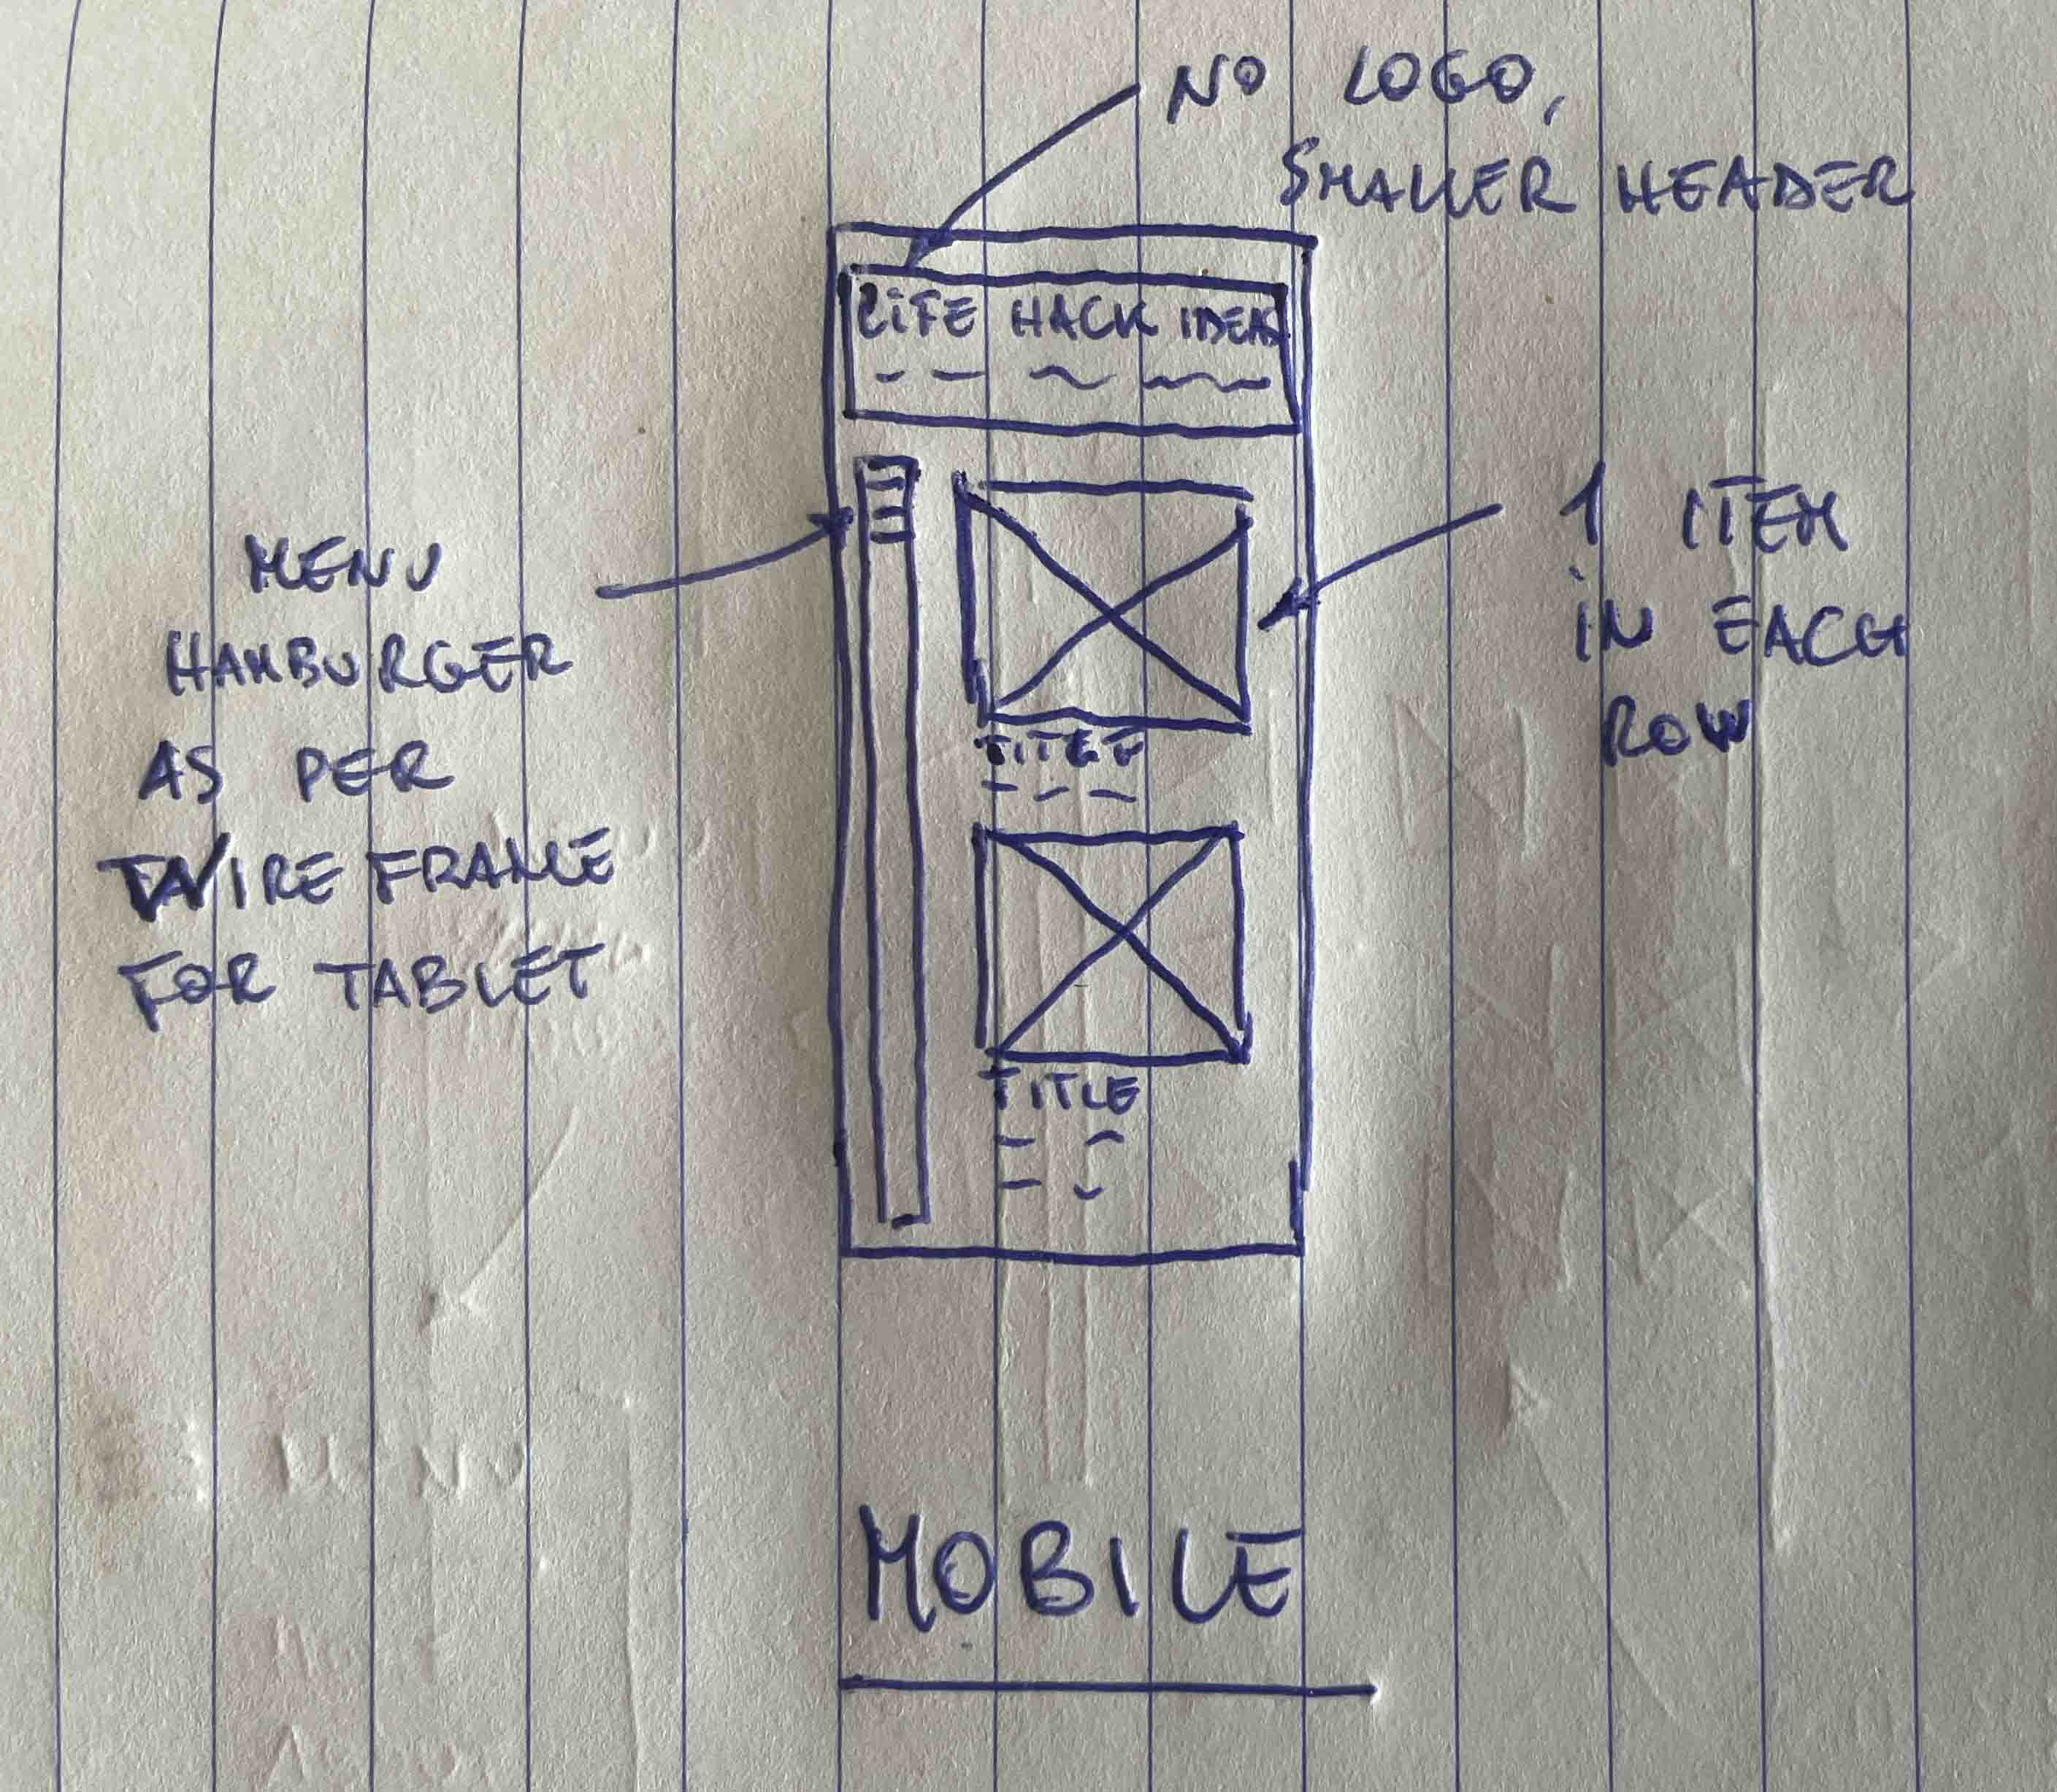 NO LOGO,
SMALLER HEADER
LIFE HACK IDEAS
MENU
HAMBURGER
AS PER
WIREFRAME
FOR TABLET
1 ITEM
IN EACH
ROW
TITLE
TITLE
MOBILE